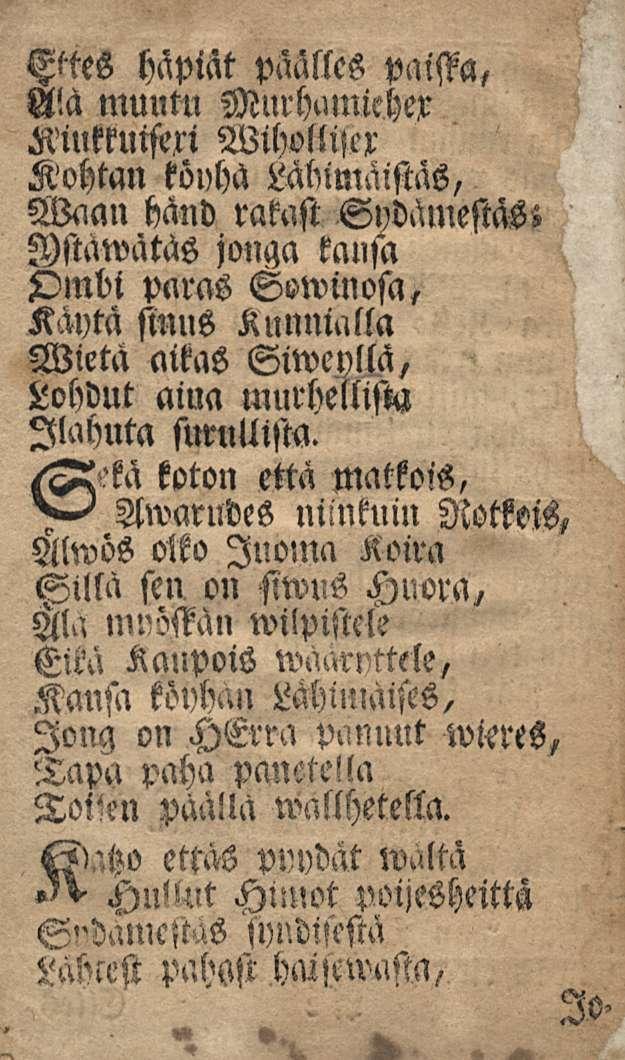 Ettes häpiät päälles paiska,
Älä muutu Murhamiehex
Kiukkuisexi Wihollisex
Kohtan köyhä Lähimäistäs,
Waan händ rakast Sydämestäs;
Ystäwätäs jonga kansa
Ombi paras Sowinosa,
Käytä sinus Kunnialla
Wietä aikas Siweyllä,
Lohdut aina murhellista
Ilahuta surullista.
Sekä koton että matkois,
Awarudes niinkuin Notkois,
Älwös olko Juoma Koira
Sillä sen on siwus Huora,
Älä myöskän wilpistele
Eikä Kaupois wääryttele,
Kansa köyhän Lähimäises,
Jong on HErra pannut wieres,
Tapa paha panetella
Toisen päällä wallhetella.
Katzo ettäs pyydät wältä
Hullut Himot poijesheittä
Sydämestäs syndisestä
Lähtest pahast haisewasta,
Jo-